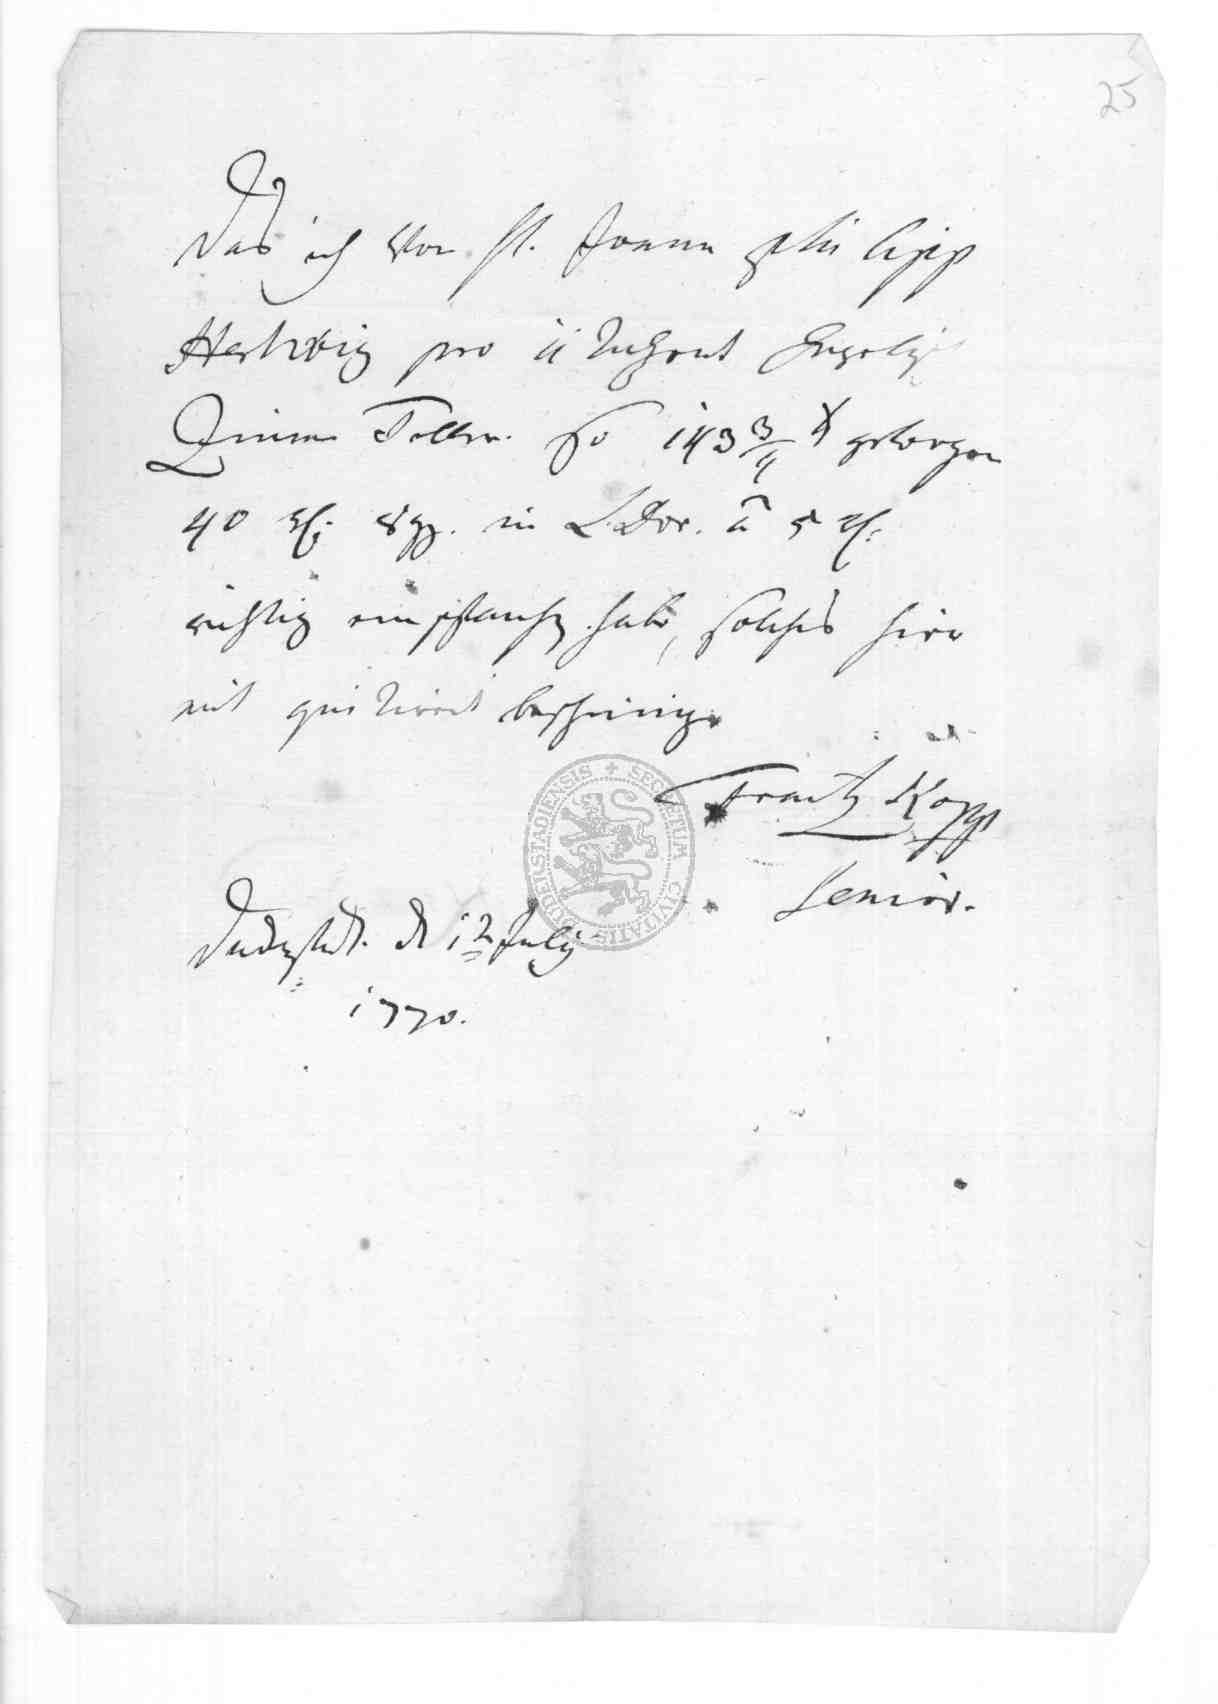 25
Das ich von H. Joann Philipp
Hertwig pro 11 Duhzent Engelsh
Zinne Teller. so 143 3/4 ℔ gewogen
40 rth. 8 ggr. in L. Dor. a 5 rth.
richtig empfangen habe, solches hier
mit quitirent bescheinige
Frantz Kopp
Senior.
Duderstadt. d 12 July
1770.
SECRETUM CIVITATIS DUDERSTADIENSIS